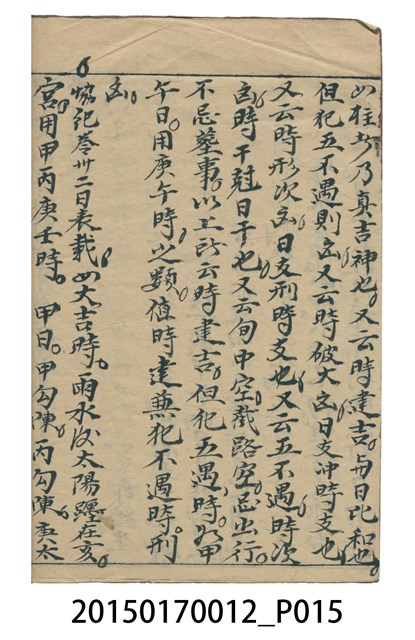 如枉少乃真吉神也又云時建吉與日比和也
但犯五不遇則凶又云時破大凶日支冲時支也
又云時刑次凶日支刑時支也又云五不遇時次
凶時干尅日干也又云旬中空截路空忌出行
不忌塟事以上所云時建吉但犯五遇時如甲
午日用庚午時之類值時建無犯不遇時刑
凶
協記卷卅二日表載如大吉時雨水後太陽躔在亥
宮用甲丙庚壬時 甲日甲勾陳丙勾陳庚太
20150170012_P015